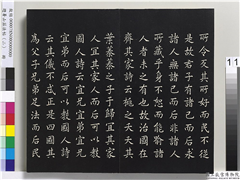 所令反其所好而民不從
是故君子有諸己而后求
諸人無諸己而后非諸人
所藏乎身不恕而能喻諸
人者未之有也故治國在
齊其家詩云桃之夭夭其
葉蓁蓁之子于歸宜其家
人宜其家人而后可以教
國人詩云宜兄宜弟宜兄
宜弟而后可以教國人詩
云其儀不忒正是四國其
為父子兄弟足法而后民
11